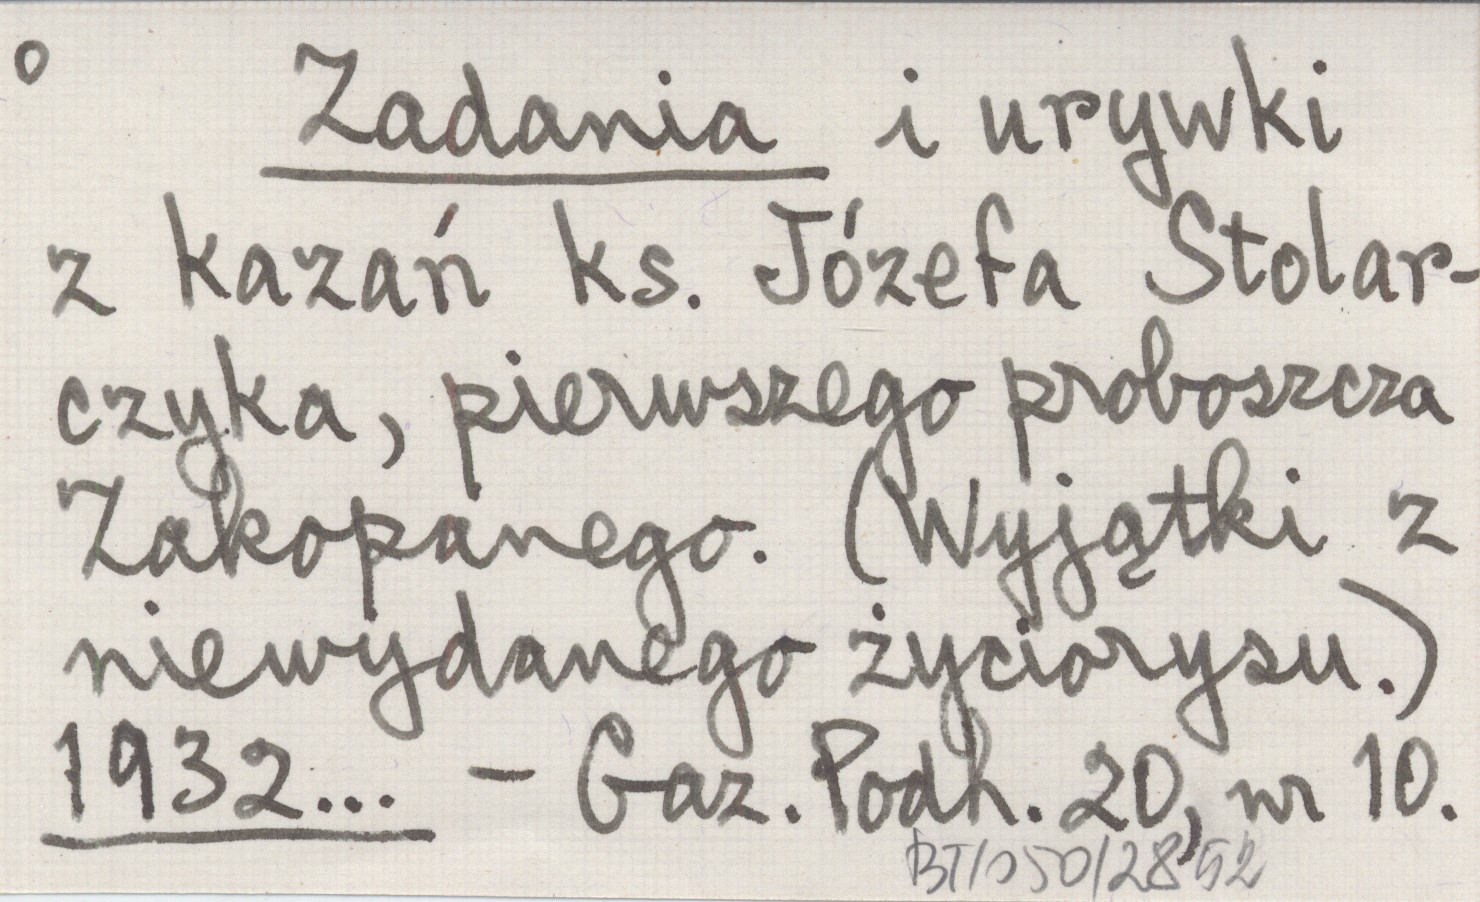 o Zadania i urywki
z kazań ks. Józefa Stolar-
czyka, pierwszego proboszcza
Zakopanego. (Wyjątki z
niewydanego życiorysu.)
1932... - Gaz. Podh. 20, nr 10.
BT/050/2852